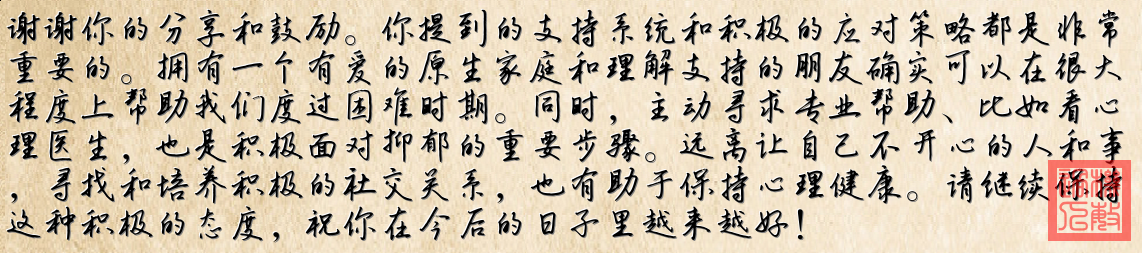 谢谢你的分享和鼓励。你提到的支持系统和积极的应对策略都是非常
重要的。拥有一个有爱的原生家庭和理解支持的朋友确实可以在很大
程度上帮助我们度过困难时期。同时，主动寻求专业帮助、比如看心
理医生，也是积极面对抑郁的重要步骤。远离让自己不开心的人和事
，寻找和培养积极的社交关系，也有助于保持心理健康。请继续保持
这种积极的态度，祝你在今后的日子里越来越好！